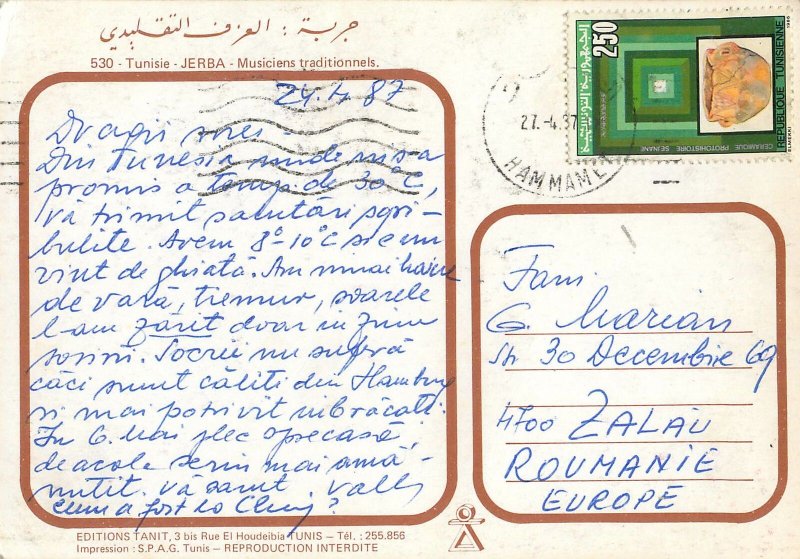 جربة : العزف التقليدي
530 - Tunisie - JERBA - Musiciens traditionnels.
24.4.87
Dragii mei -
Din Tunesia unde mi s-a
promis o temp. de 30°C,
vă trimit salutări zgri-
bulite. Avem 8°-10°C și e un
vînt de ghiață. Am numai haine
de vară, tremur, soarele
l-am zărit doar în ziua
sosirii. Socrii nu suferă
căci sunt căliți din Hamburg
și mai potrivit îmbrăcați.
În 6. Mai plec spre casă,
de acolo scriu mai amă-
nunțit. Vă sărut Vally
cum a fost la Cluj?
Fam.
G. Marian
Str 30 Decembrie 69
4700 ZALĂU
ROUMANIE
EUROPE
250
الجمهورية التونسية
REPUBLIQUE TUNISIENNE
1986
CERAMIQUE PROTOHISTOIRE SEJNANE
ELMEKKI
27.-4.87
HAMMAMET
EDITIONS TANIT, 3 bis Rue El Houdeibia TUNIS - Tél. : 255.856
Impression : S.P.A.G. Tunis - REPRODUCTION INTERDITE